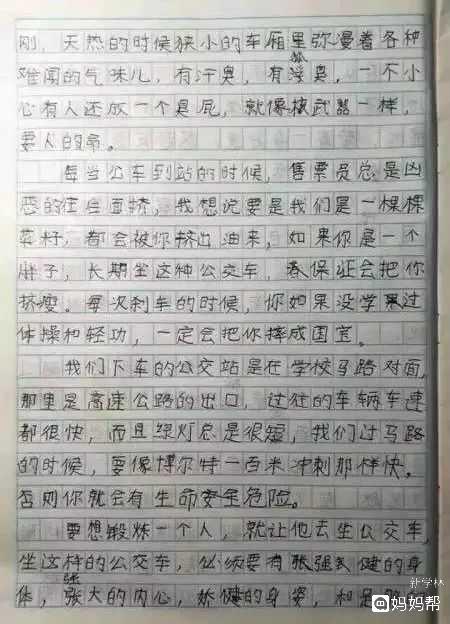 刚，天热的时候狭小的车厢里弥漫着各种
难闻的气味儿，有汗臭，有狐臭，一不小
心有人还放一个臭屁，就像核武器一样，
要人的命。
每当公车到站的时候，售票员总是凶
恶的往后面挤，我想说要是我们是一棵棵
菜籽，都会被你挤出油来，如果你是一个
胖子，长期坐这种公交车，我保证会把你
挤瘦。每次刹车的时候，你如果没学过
体操和轻功，一定会把你摔成国宝。
我们下车的公交站是在学校马路对面，
那里是高速公路的出口，过往的车辆车速
都很快，而且绿灯总是很短，我们过马路
的时候，要像博尔特一百米冲刺那样快。
否则你就会有生命安全危险。
要想锻炼一个人，就让他去坐公交车，
坐这样的公交车，必须要有强健的身
体，强大的内心，娇健的身姿，和
新学林
@妈妈帮